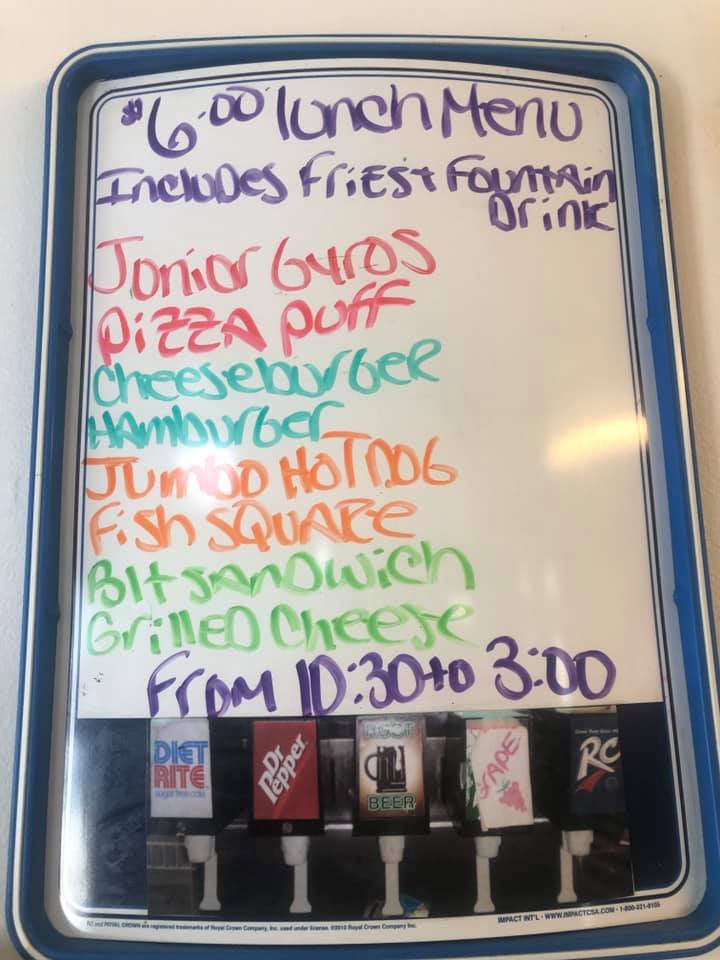 $6.00 lunch Menu
IncluDes FriEs + FountAin
Drink
Junior Gyros
PizzA puff
CheeseburgeR
HAmburger
JUmbO HOT DOG
Fish SQUARe
Blt sAnDwich
GrillED Cheese
From 10:30 to 3:00
DIET
RITE
sugar free cola
Dr
Pepper
ROOT
BEER
GRAPE
RC
RC and ROYAL CROWN are registered trademarks of Royal Crown Company, Inc. used under license. ©2010 Royal Crown Company, Inc.
IMPACT INT'L • WWW.IMPACTCSA.COM • 1-800-221-8105